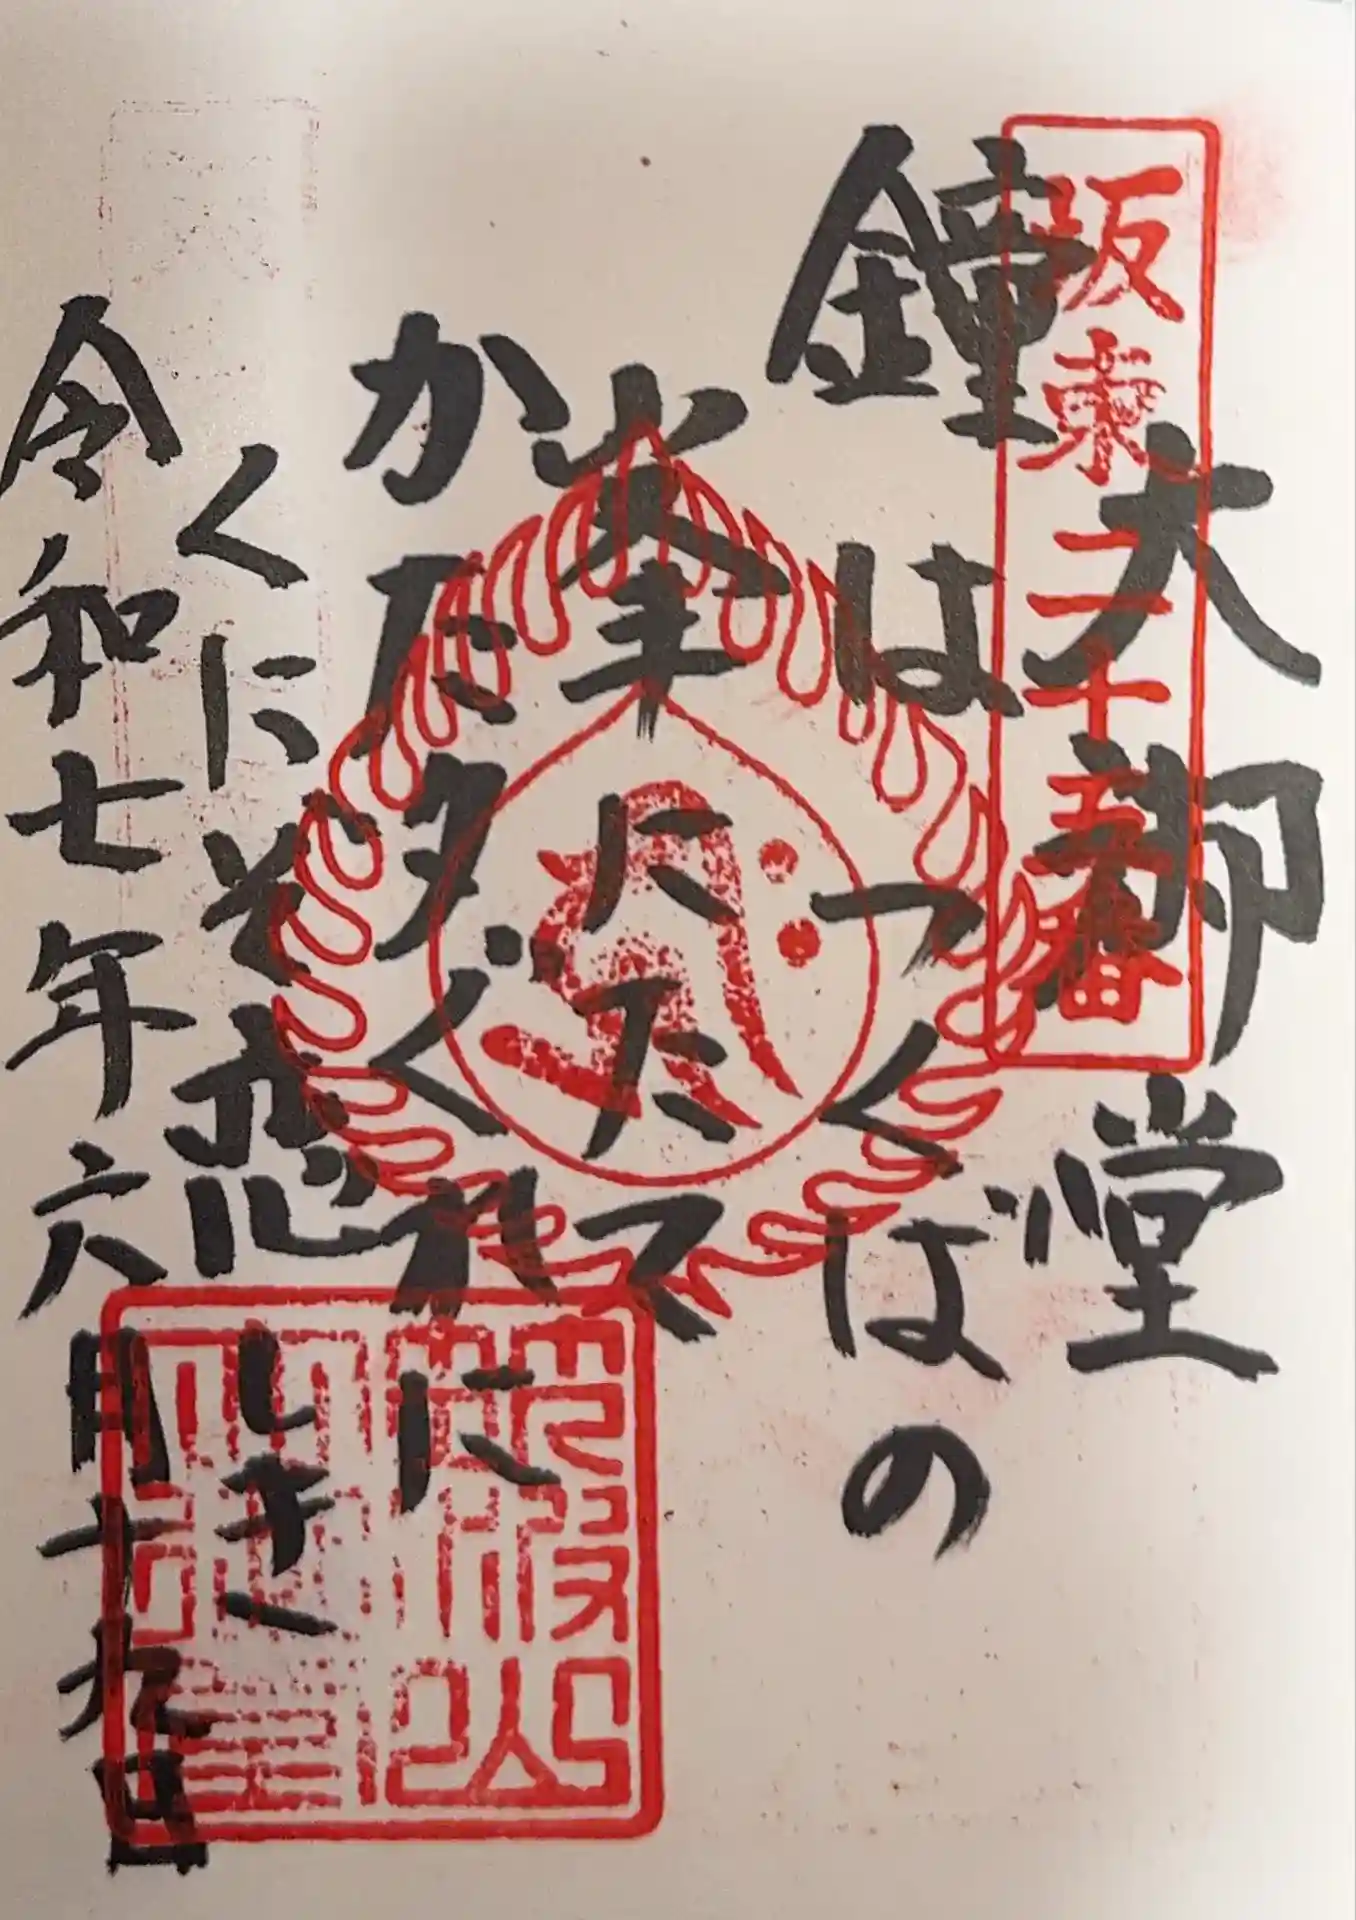 坂東二十五番
大御堂
鐘はつくばの
峯にたて
かた夕ぐれに
くにぞ恋しき
令和七年六月十九日